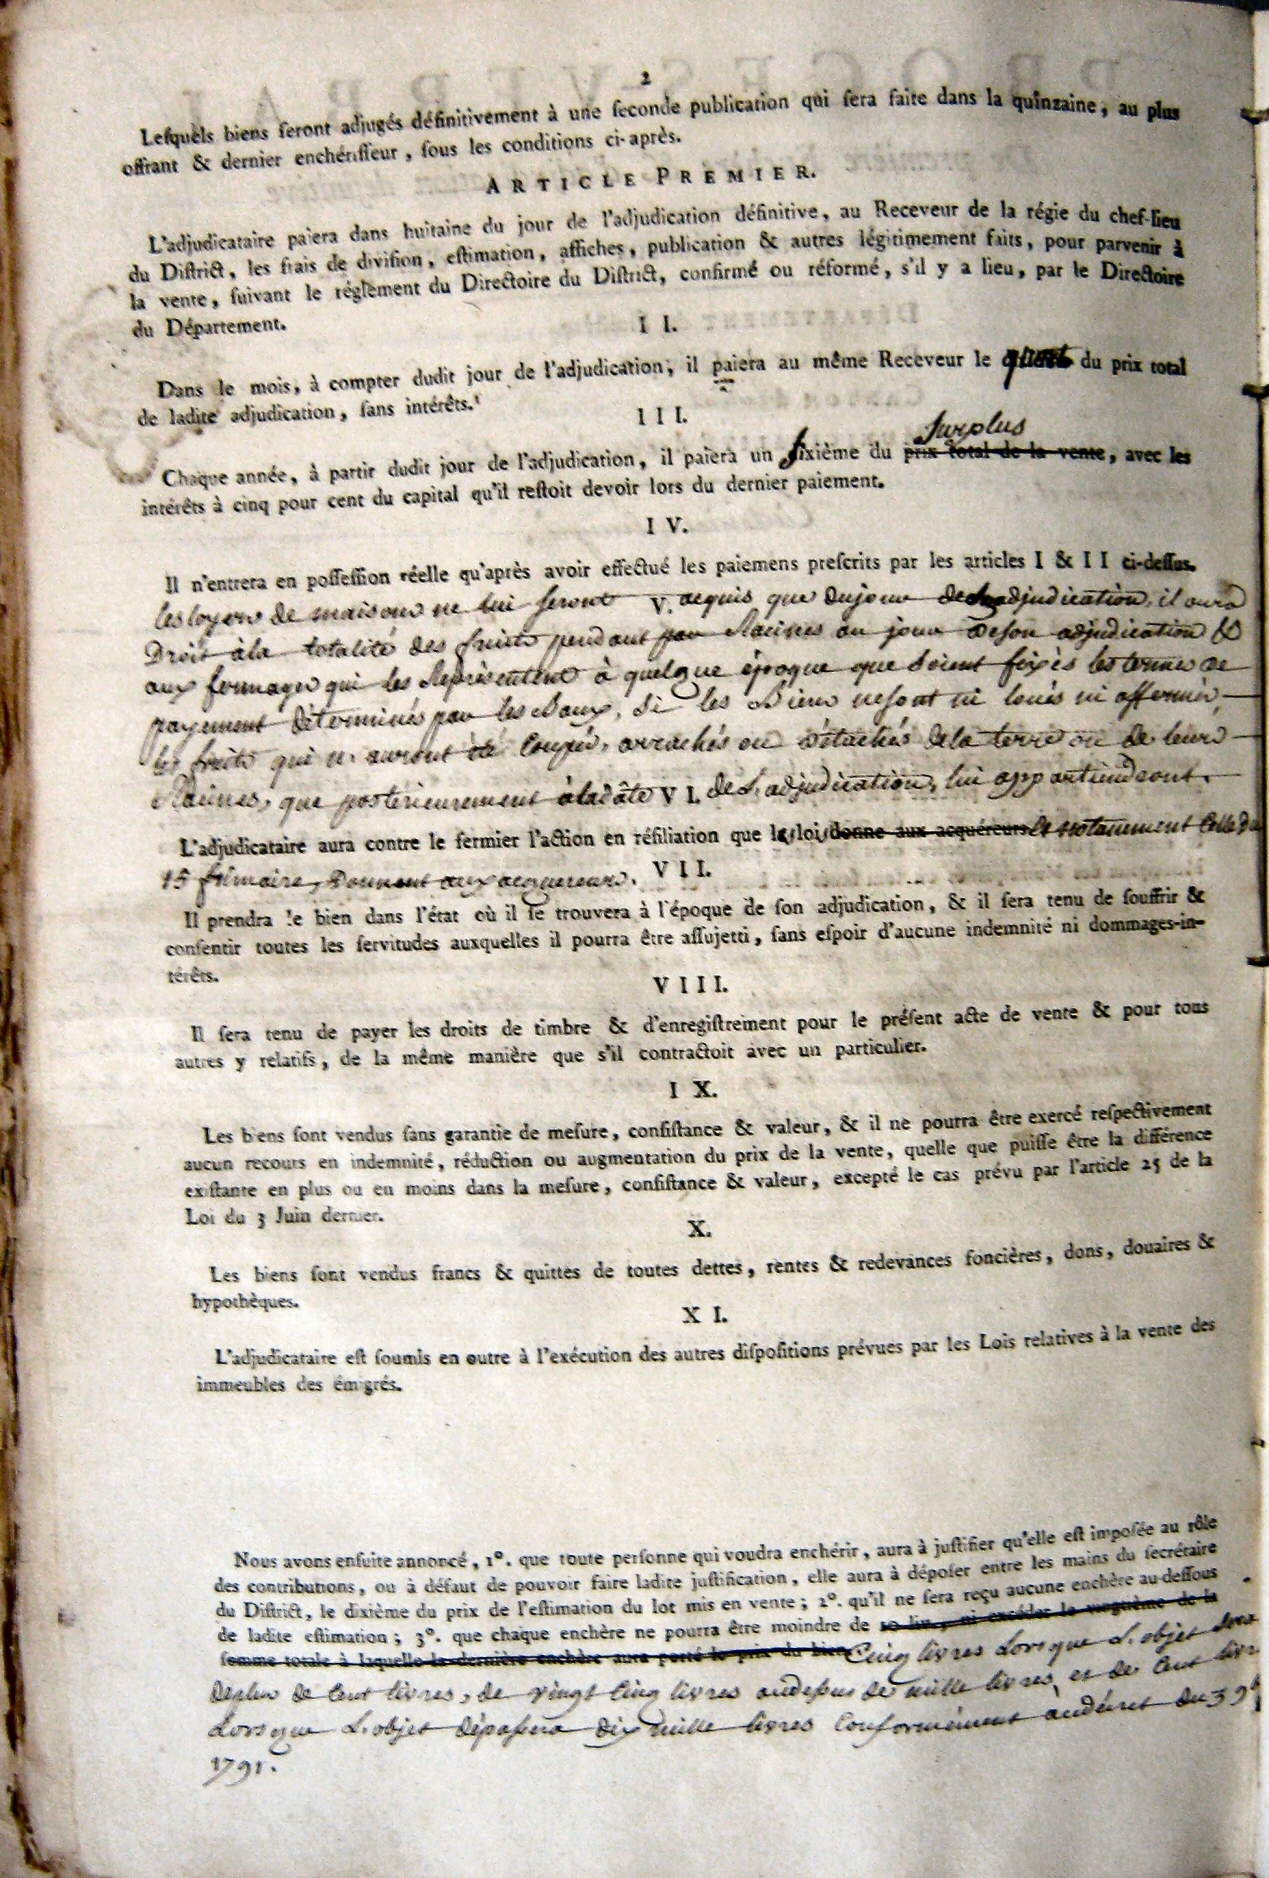 2
Lesquels biens seront adjugés définitivement à une seconde publication qui sera faite dans la quinzaine, au plus
offrant & dernier enchérisseur, sous les conditions ci-après.
ARTICLE PREMIER.
L'adjudicataire paiera dans huitaine du jour de l'adjudication définitive, au Receveur de la régie du chef-lieu
du District, les frais de division, estimation, affiches, publication & autres légitimement faits, pour parvenir à
la vente, suivant le réglement du Directoire du District, confirmé ou réformé, s'il y a lieu, par le Directoire
du Département.
II.
Dans le mois, à compter dudit jour de l'adjudication, il paiera au même Receveur le quart du prix total
de ladite adjudication, sans intérêts.
III.
surplus
Chaque année, à partir dudit jour de l'adjudication, il paiera un sixième du prix total de la vente, avec les
intérêts à cinq pour cent du capital qu'il restoit devoir lors du dernier paiement.
IV.
Il n'entrera en possession réelle qu'après avoir effectué les paiemens prescrits par les articles I & II ci-dessus.
les loyers de maisons ne lui seront V. acquis que du jour de adjudication, il aura
Droit à la totalité des fruits pendant par Racines au jour de son adjudication &
aux fermages qui les Représentent à quelque époque que soient fixés les termes de
payement déterminés par les Baux, si les Biens ne sont ni loués ni affermés,
les fruits qui n'auront été Coupés, arrachés ou détachés de la terre ou de leurs
Racines, que postérieurement à la date VI. de L'adjudication, lui appartiendront.
L'adjudicataire aura contre le fermier l'action en résiliation que les lois donne aux acquéreurs et notamment Celle du
15 frimaire, Donnent aux acquereurs. VII.
Il prendra le bien dans l'état où il se trouvera à l'époque de son adjudication, & il sera tenu de souffrir &
consentir toutes les servitudes auxquelles il pourra être assujetti, sans espoir d'aucune indemnité ni dommages-in-
térêts.
VIII.
Il sera tenu de payer les droits de timbre & d'enregistrement pour le présent acte de vente & pour tous
autres y relatifs, de la même manière que s'il contractoit avec un particulier.
IX.
Les biens sont vendus sans garantie de mesure, consistance & valeur, & il ne pourra être exercé respectivement
aucun recours en indemnité, réduction ou augmentation du prix de la vente, quelle que puisse être la différence
existante en plus ou en moins dans la mesure, consistance & valeur, excepté le cas prévu par l'article 25 de la
Loi du 3 Juin dernier.
X.
Les biens sont vendus francs & quittes de toutes dettes, rentes & redevances foncières, dons, douaires &
hypothèques.
XI.
L'adjudicataire est soumis en outre à l'exécution des autres dispositions prévues par les Lois relatives à la vente des
immeubles des émigrés.
Nous avons ensuite annoncé, 1°. que toute personne qui voudra enchérir, aura à justifier qu'elle est imposée au rôle
des contributions, ou à défaut de pouvoir faire ladite justification, elle aura à déposer entre les mains du secrétaire
du District, le dixième du prix de l'estimation du lot mis en vente; 2°. qu'il ne sera reçu aucune enchère au-dessous
de ladite estimation; 3°. que chaque enchère ne pourra être moindre de 10 liv., ni excéder le vingtième de la
somme totale à laquelle la dernière enchère aura porté le prix du bien Cinq livres Lorsque L'objet sera
de plus de Cent livres, de vingt Cinq livres audessus de mille livres, et de Cent livres
Lorsque L'objet dépassera dix mille livres Conformément au décret du 3 9b
1791.